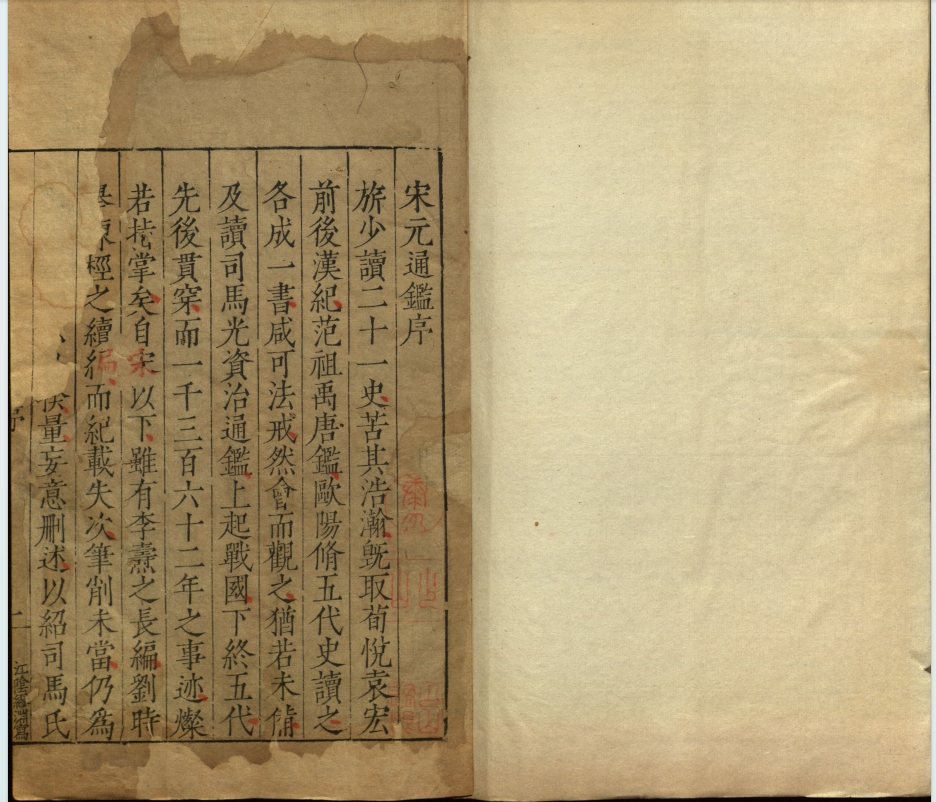 宋元通鑑序
旂少讀二十一史苦其浩瀚旣取荀悅袁宏
前後漢紀范祖禹唐鑑歐陽脩五代史讀之
各成一書咸可法戒然會而觀之猶若未備
及讀司馬光資治通鑑上起戰國下終五代
先後貫穿而一千三百六十二年之事迹燦
若指掌矣自宋以下雖有李燾之長編劉時
舉陳桱之續編而紀載失次筆削未當仍爲
量妄意刪述以紹司馬氏
序
一
江陰